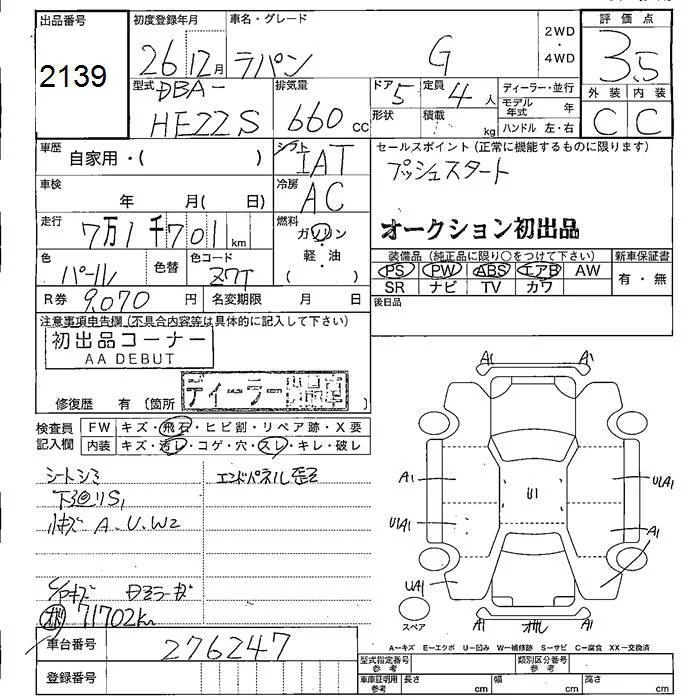 出品番号
2139
初度登録年月
26 12月
車名・グレード
ラパン G
2WD
・
4WD
評価点
3.5
外装 内装
C C
型式
DBA-
HE22S
排気量
660 cc
ドア 5
定員 4 人
形状
積載 kg
ディーラー・並行
モデル年式 年
ハンドル 左・右
車歴
自家用・( )
シフト
IAT
セールスポイント(正常に機能するものに限ります)
プッシュスタート
オークション初出品
車検
年 月( 日)
冷房
AC
走行
7万1千701 km
燃料
ガソリン
・
軽油
( )
色
パール
色替
色コード
Z7T
装備品(純正品に限り○をつけて下さい)
新車保証書
PS PW ABS エアB AW
SR ナビ TV カワ
有・無
R券 9,070 円
名変期限 月 日
後日品
注意事項申告欄(不具合内容等は具体的に記入して下さい)
初出品コーナー
AA DEBUT
ディーラー
修復歴 有(箇所 )
検査員記入欄
FW キズ・飛石・ヒビ割・リペア跡・X要
内装 キズ・汚レ・コゲ・穴・スレ・キレ・破レ
シートシミ
エンドパネル歪
下廻りS1
小キズ A.U.W2
71702km
車台番号
276247
登録番号
A1 A1
A1
U1
U1A1
U1A1
A1
UA1
A1
A1
スペア
A=キズ E=エクボ U=凹み W=補修跡 S=サビ C=腐食 XX=交換済
型式指定番号
参考
類別区分番号
参考
車庫証明用
参考
長さ cm
幅 cm
高さ cm